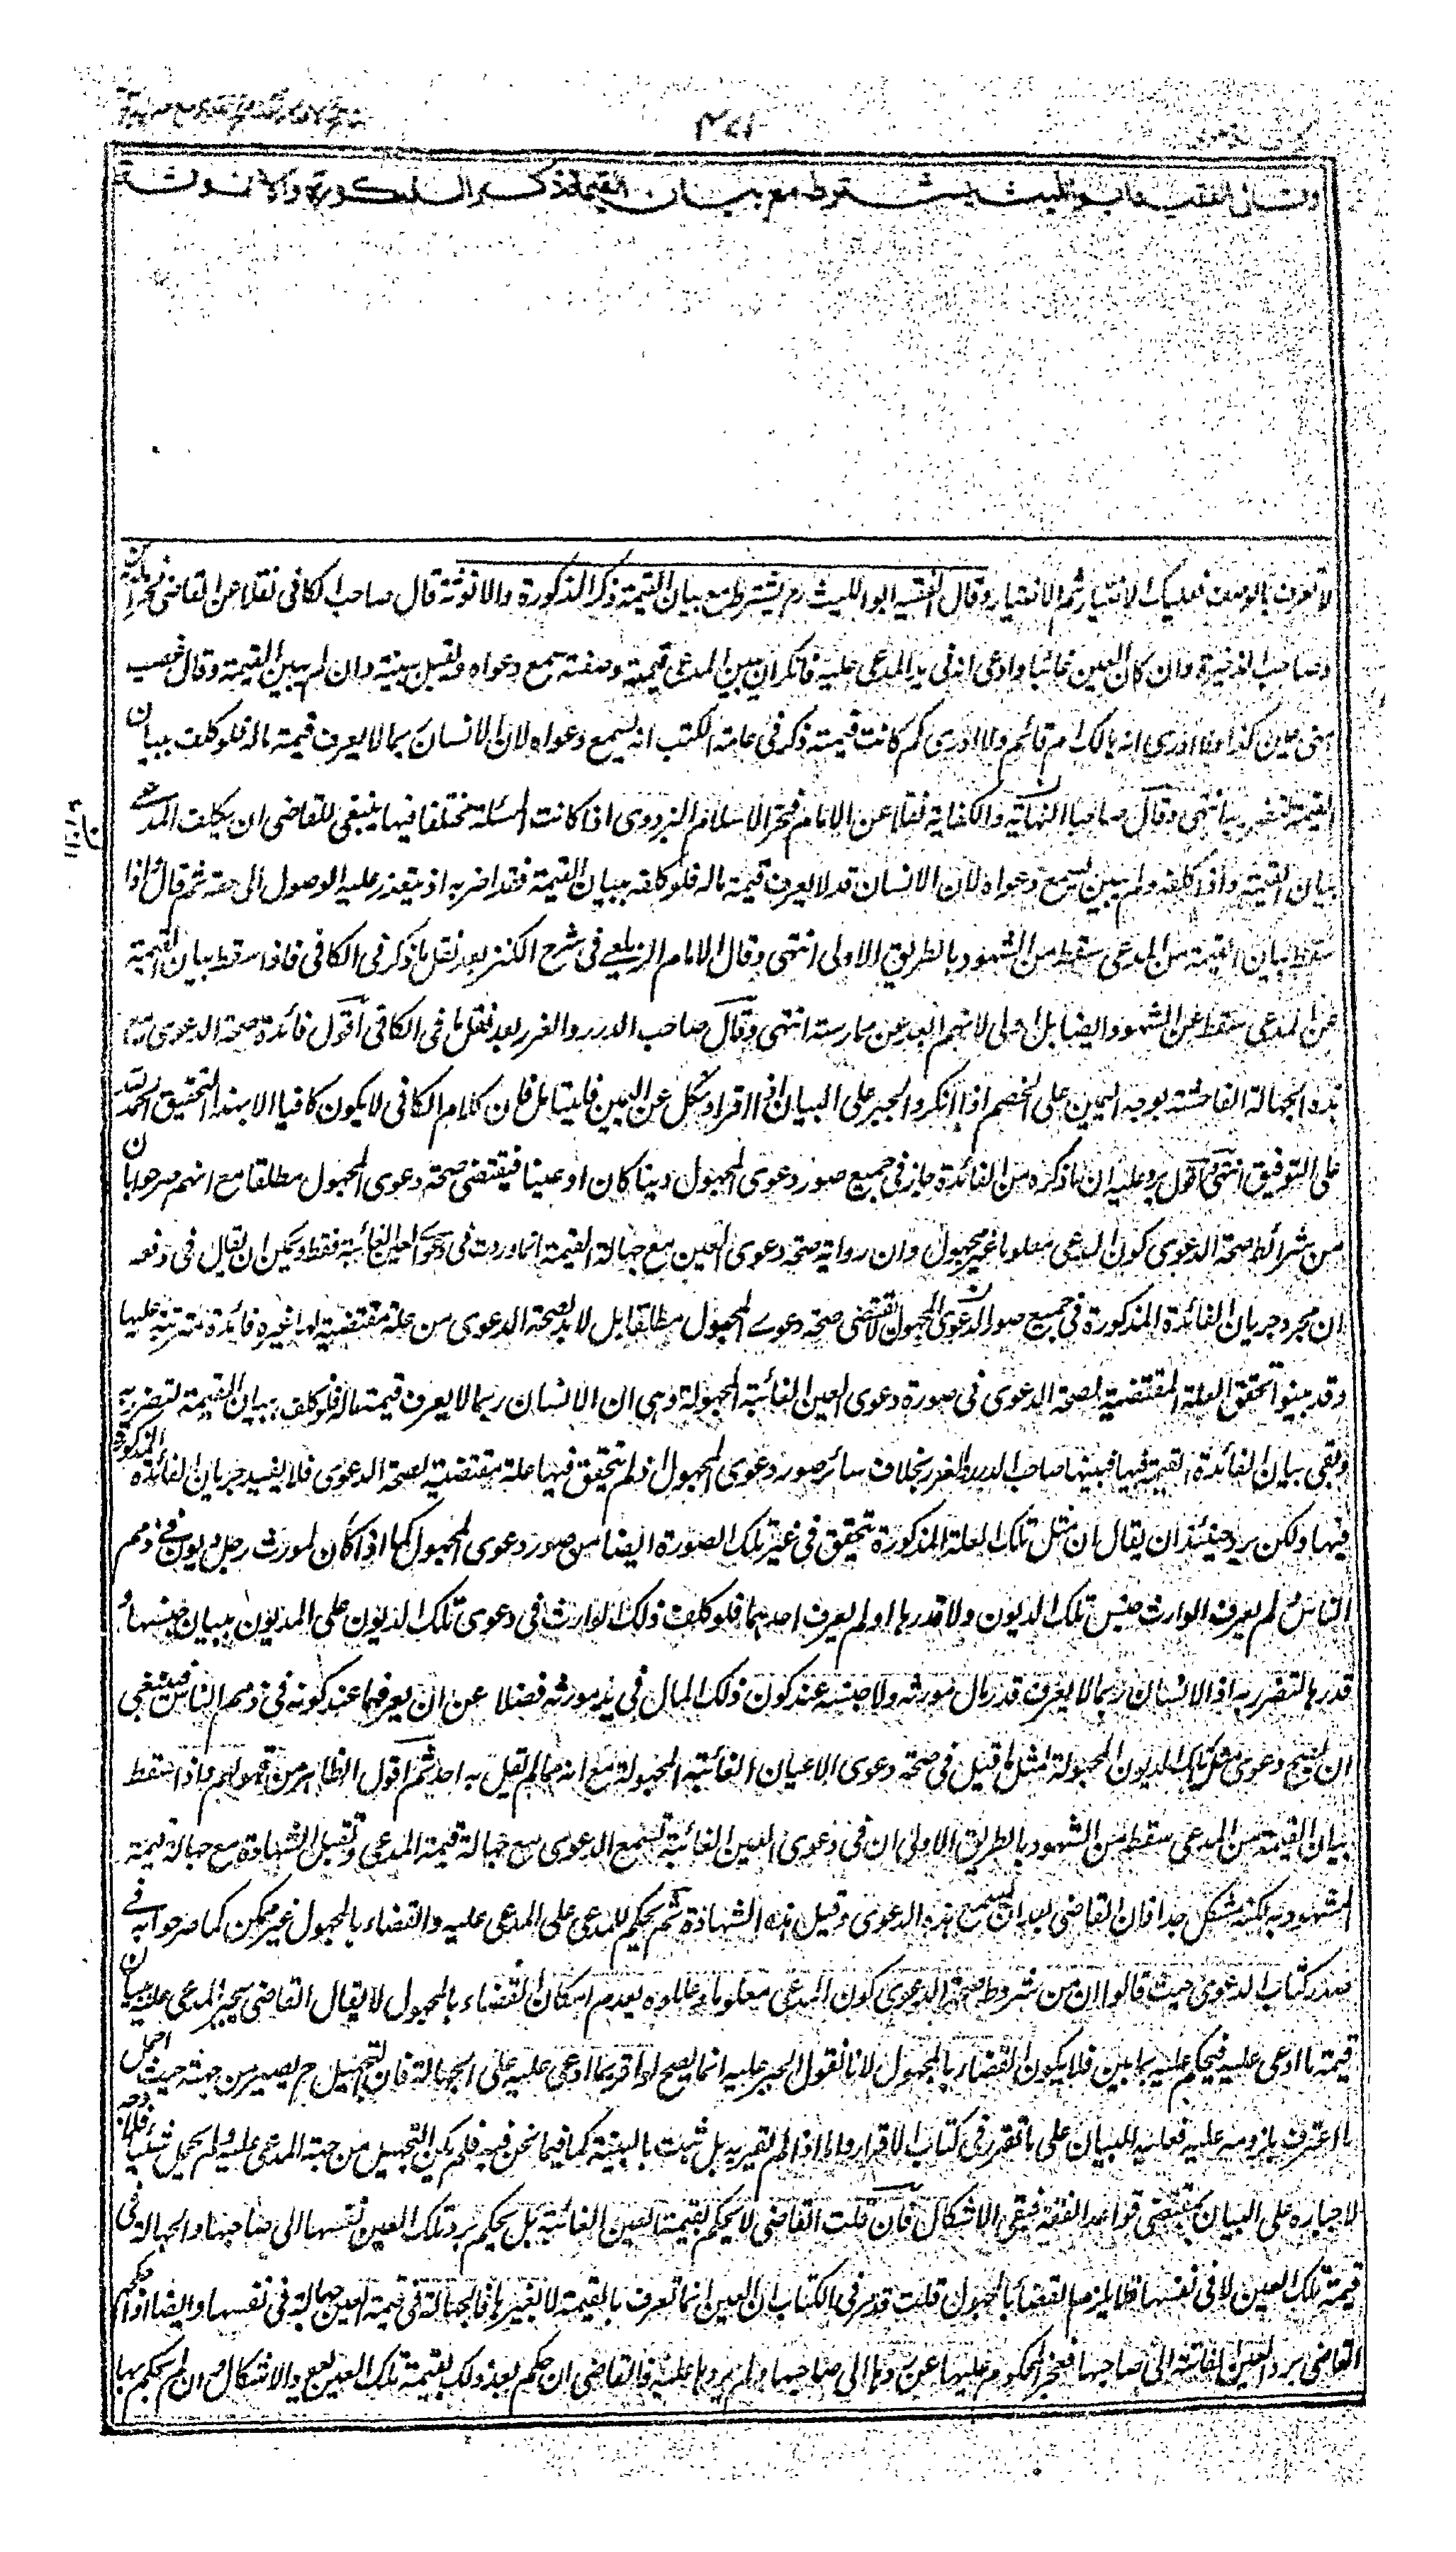 وقال الفقيه ابو الليث يشترط مع بيان القيمة ذكر الذكورة والانوثة
لا تعرف بالوصف فعليك الاختيار ثم الاختيار وقال الفقيه ابو الليث رح يشترط مع بيان القيمة ذكر الذكورة والانوثة قال صاحب الكافى نقلا عن القاضى فخر الدين
وصاحب الذخيرة وان كان العين غائبا وادعى انه فى يد المدعى عليه فانكر ان بين المدعى قيمته وصفته يسمع دعواه وتقبل بينته وان لم يبين القيمة وقال غصب
منى عين كذا ولا ادرى انه هالك ام قائم ولا ادرى كم كانت قيمته ذكر فى عامة الكتب انه يسمع دعواه لان الانسان ربما لا يعرف قيمة ماله فلو كلف بيان
القيمة لتضرر به انتهى وقال صاحبا النهاية والكفاية نقلا عن الامام فخر الاسلام البزدوى اذا كانت المسئلة مختلفا فيها ينبغى للقاضى ان يكلف المدعى
بيان القيمة واذا كلفه ولم يبين يسمع دعواه لان الانسان قد لا يعرف قيمة ماله فلو كلفه ببيان القيمة فقد اضر به اذ يتعذر عليه الوصول الى حقه ثم قال واذا
سقط بيان القيمة من المدعى سقط من الشهود بالطريق الاولى انتهى وقال الامام الزيلعى فى شرح الكنز بعد نقل ما ذكر فى الكافى فاذا سقط بيان القيمة
عن المدعى سقط عن الشهود ايضا بل اولى لانهم ابعد عن ممارسته انتهى وقال صاحب الدرر والغرر بعد نقل ما فى الكافى اقول فائدة صحة الدعوى مع
هذه الجهالة الفاحشة توجه اليمين على الخصم اذا انكر والجبر على البيان اذا اقر او نكل عن اليمين فليتامل فان كلام الكافى لا يكون كافيا الا بهذا التحقيق والحمد لله
على التوفيق انتهى اقول يرد عليه ان ما ذكره من الفائدة جاز فى جميع صور دعوى المجهول دينا كان او عينا فيقتضى صحة دعوى المجهول مطلقا مع انهم صرحوا بان
من شرائط صحة الدعوى كون المدعى معلوما غير مجهول وان رواية صحة دعوى العين مع جهالة القيمة انما وردت فى دعوى العين الغائبة فقط ويمكن ان يقال فى دفعه
ان مجرد جريان الفائدة المذكورة فى جميع صور الدعوى المجهول لا تقتضى صحة دعوى المجهول مطلقا بل لا بد لصحة الدعوى من علة مقتضية لها غيره فائدة مترتبة عليها
وقد بينوا تحقق العلة المقتضية لصحة الدعوى فى صورة دعوى العين الغائبة المجهولة وهى ان الانسان ربما لا يعرف قيمة ماله فلو كلف ببيان القيمة لتضرر به
وبقى بيان الفائدة القيمة فيها فبينها صاحب الدرر والغرر بخلاف سائر صور دعوى المجهول اذ لم يتحقق فيها علة مقتضية لصحة الدعوى فلا يفيد جريان الفائدة المذكورة
فيها ولكن يرد حينئذ ان يقال ان مثل تلك العلة المذكورة تتحقق فى غير تلك الصورة ايضا من صور دعوى المجهول كما اذا كان لمورث رجل ديون فى ذمم
الناس ولم يعرف الوارث جنس تلك الديون ولا قدرها او لم يعرف احدهما فلو كلف ذلك الوارث فى دعوى تلك الديون على المديون ببيان جنسها و
قدرها لتضرر به اذ الانسان ربما لا يعرف قدر مال مورثه ولا جنسه عند كون ذلك المال فى يد مورثه فضلا عن ان يعرفهما عند كونه فى ذمم الناس فينبغى
ان يصح دعوى مثل تلك الديون المجهولة لمثل ما قيل فى صحة دعوى الاعيان الغائبة المجهولة مع انه مما لم يقل به احد ثم اقول الظاهر من قولهم واذا سقط
بيان القيمة من المدعى سقط من الشهود بالطريق الاولى ان فى دعوى العين الغائبة تسمع الدعوى مع جهالة قيمة المدعى وتقبل الشهادة مع جهالة قيمة
المشهود به لكنه مشكل جدا فان القاضى بعد ان يسمع هذه الدعوى وقبل هذه الشهادة ثم يحكم للمدعى على المدعى عليه والقضاء بالمجهول غير ممكن كما صرحوا به فى
صدر كتاب الدعوى حيث قالوا ان من شروط صحة الدعوى كون المدعى معلوما وعللوه بعدم امكان القضاء بالمجهول لا يقال القاضى يجبر المدعى عليه ببيان
قيمة ما ادعى عليه فيحكم عليه بما بين فلا يكون القضاء بالمجهول لانا نقول الجبر عليه انما يصح اذا اقر بما ادعى عليه على الجهالة فان التجهيل ح يصير من جهته حيث اجمل
ما اعترف بلزومه عليه فعليه البيان على ما تقرر فى كتاب الاقرار واما اذا لم يقر به بل ثبت بالبينة كما فيما نحن فيه فلم يكن التجهيل من جهة المدعى عليه ولم يجمل شيئا فلا وجه
لاجباره على البيان بمقتضى قواعد الفقه فبقى الاشكال فان قلت القاضى لا يحكم بقيمة العين الغائبة بل يحكم برد تلك العين نفسها الى صاحبها والجهالة فى
قيمة تلك العين لا فى نفسها فلا يلزم القضاء بالمجهول قلت قد مر فى الكتاب ان العين انما تعرف بالقيمة لا بغيرها فالجهالة فى قيمة العين جهالة فى نفسها وايضا اذا حكم
القاضى برد العين الغائبة الى صاحبها فعجز المحكوم عليها عن ردها الى صاحبها ولم يردها عليه فالقاضى ان حكم بعد ذلك بقيمة تلك العين يعود الاشكال وان لم يحكم بها